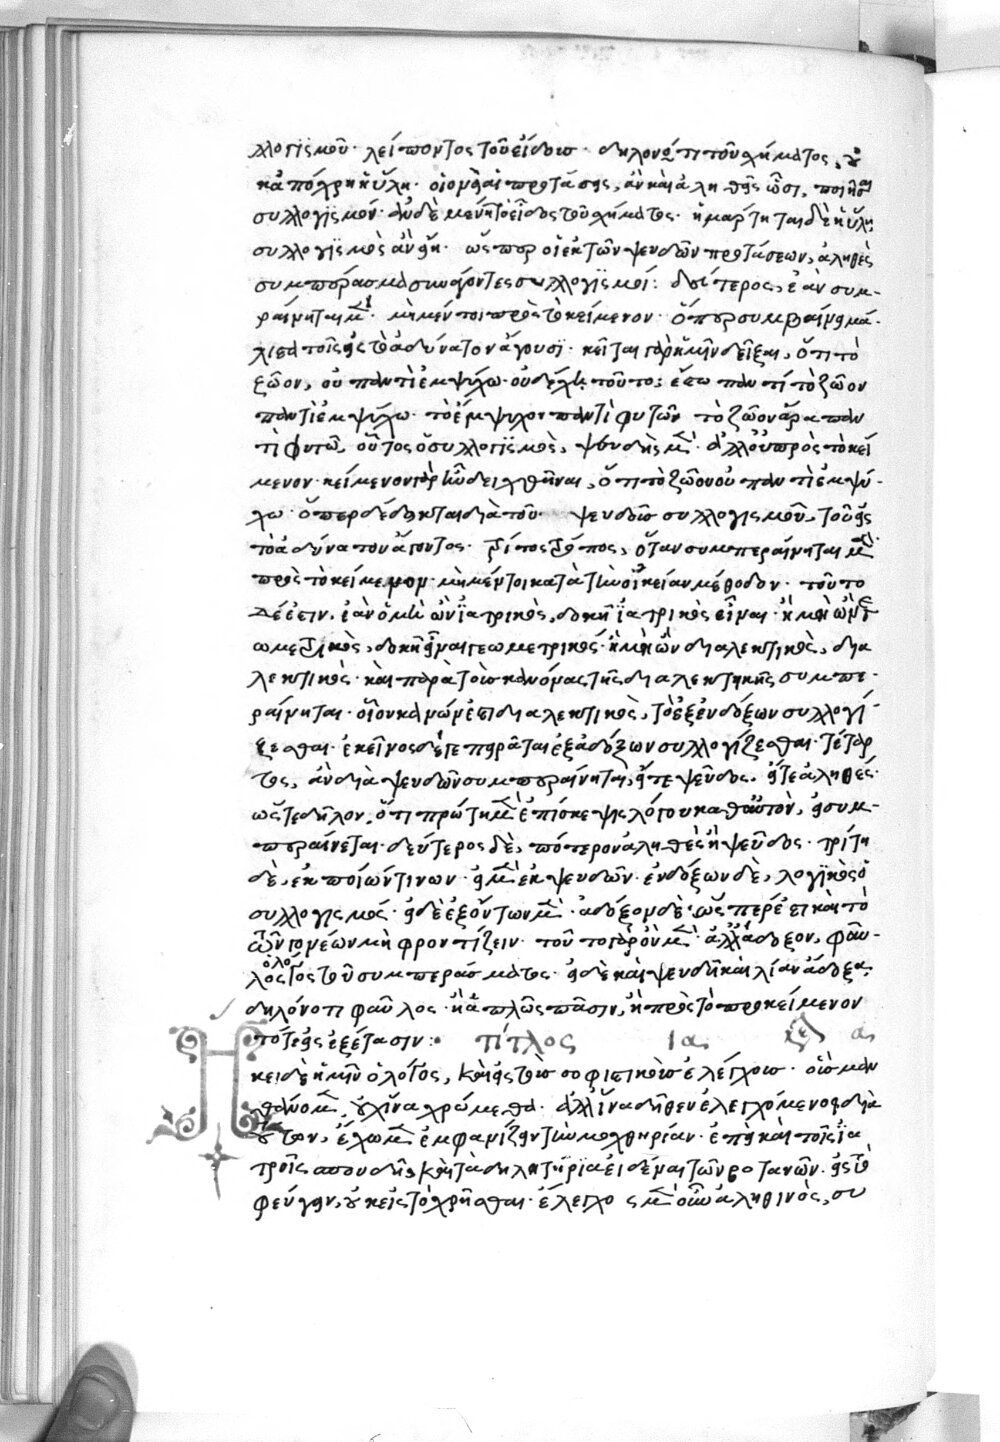 λλογϊσμοῦ· λείποντος τοῦ εἴδους· δηλονότι τοῦ σχήματος,
κἂ ἀπόχρη ἡ ὕλη· οἱονεὶ αἱ προτάσεις, ἂν καὶ ἀληθεῖς ὦσι, ποιῆσαι
συλλογισμόν· ἂν δὲ μένη τὸ εἶδος τοῦ σχήματος· ἡμάρτηται δὲ ἡ ὕλη,
συλλογϊσμὸς ἂν εἴη· ὥσπερ οἱ ἐκ τῶν ψευδῶν προτάσεων, ἀληθὲς
συμπέρασμα συνάγοντες συλλογϊσμοί: δεύτερος, ἐὰν συμ-
ραίνηται μὲν· μὴ μέντοι πρὸς τὸ κείμενον· ὅπερ συμβαίνει μά-
λιστα τοῖς εἰς τὸ ἀδύνατον ἄγουσϊ· κεῖται γὰρ ἡμῖν δεῖξαι, ὅτι τὸ
ζῶον, οὐ παντὶ ἐμψύχω· οὐδεὶς τοῦτο; ἔστω παντὶ τὸ ζῶον
παντὶ ἐμψύχω· τὸ ἔμψυχον παντὶ φυτῶ· τὸ ζῶον ἄρα παν
τὶ φυτῶ, οὗτος ὁ συλλογϊσμὸς, ψευδὴς μὲν· ἀλλ' οὐ πρὸς τὸ κεί
μενον· κείμενον γὰρ ἦν δειχθῆναι, ὅτι τὸ ζῶον οὐ παντὶ ἐμψύ-
χω· ὅπερ δέδεικται διὰ τοῦ ψευδοῦς συλλογισμοῦ, τοῦ εἰς
τὸ ἀδύνατον ἄγοντος· τρίτος τρόπος, ὅταν συμπεραίνηται μὲν
πρὸς τὸ κείμενον· μὴ μέντοι κατὰ τὴν οἰκείαν μέθοδον· τοῦτο
δέ ἐστιν, ἐὰν ὁ μὴ ὢν ϊατρικὸς, δοκῆ ϊατρικὸς εἶναι· ἢ μὴ ὢν γε
ωμετρικὸς, δοκῆ εἶναι γεωμετρικός· ἢ μὴ ὢν διαλεκτικὸς, δια
λεκτικός· καὶ παρὰ τοὺς κανόνας τῆς διαλεκτικῆς συμπε-
ραίνηται· οἷον κανών ἐστι διαλεκτικὸς, τὸ ἐξ ἐνδόξων συλλογί-
ζεσθαι· ἐκεῖνος δέ γε πειρᾶται ἐξ ἀδόξων συλλογίζεσθαι· τέταρ
τος, ἂν διὰ ψευδῶν συμπεραίνηται, εἴτε ψεῦδος, εἴτε ἀληθές·
ὥστε δῆλον, ὅτι πρώτη μὲν ἐπίσκεψις λόγου καθ' αὑτὸν, εἰ συμ-
περαίνεται· δεύτερος δὲ, πότερον ἀληθὲς ἢ ψεῦδος· τρίτη
δὲ, ἐκ ποίων τινων· εἰ μὲν ἐκ ψευδῶν· ἐνδόξων δὲ, λογϊκὸς ὁ
συλλογισμός· εἰ δὲ ἐξ ὄντων μὲν· ἀδόξων δὲ· ὥσπερ ἐστὶ καὶ τὸ
τῶν γονέων μὴ φροντίζειν· τοῦτο γὰρ ὂν μὲν· ἀλλ' ἄδοξον, φαῦ-
λος ὁ λόγος τοῦ συμπεράσματος· εἰ δὲ καὶ ψευδῆ καὶ λίαν ἄδοξα,
δηλόνοτι φαῦλος· ἢ ἁπλῶς πᾶσιν, ἢ πρὸς τὸ προκείμενον
πότε εἰς ἐξέτασιν: τίτλος ια
Ηκει δὲ ἡμῖν ὁ λόγος, καὶ εἰς τοὺς σοφιστικοὺς ἐλέγχους· οὓς μαν
θάνομεν, οὐχ ἵνα χρώμεθα· ἀλλ' ἵνα δῆθεν ἐλεγχόμενοι διὰ
τούτων, ἔχωμεν ἐμφανίζειν τὴν μοχθηρίαν· ἐπεὶ καὶ τοῖς ϊα
τροῖς σπουδὴ, καὶ τὰ δηλητήρια εἰδέναι τῶν βοτανῶν· εἰς τὸ
φεύγειν, οὐκ εἰς τὸ χρῆσθαι· ἔλεγχος μὲν οὖν ἀληθινὸς, συ